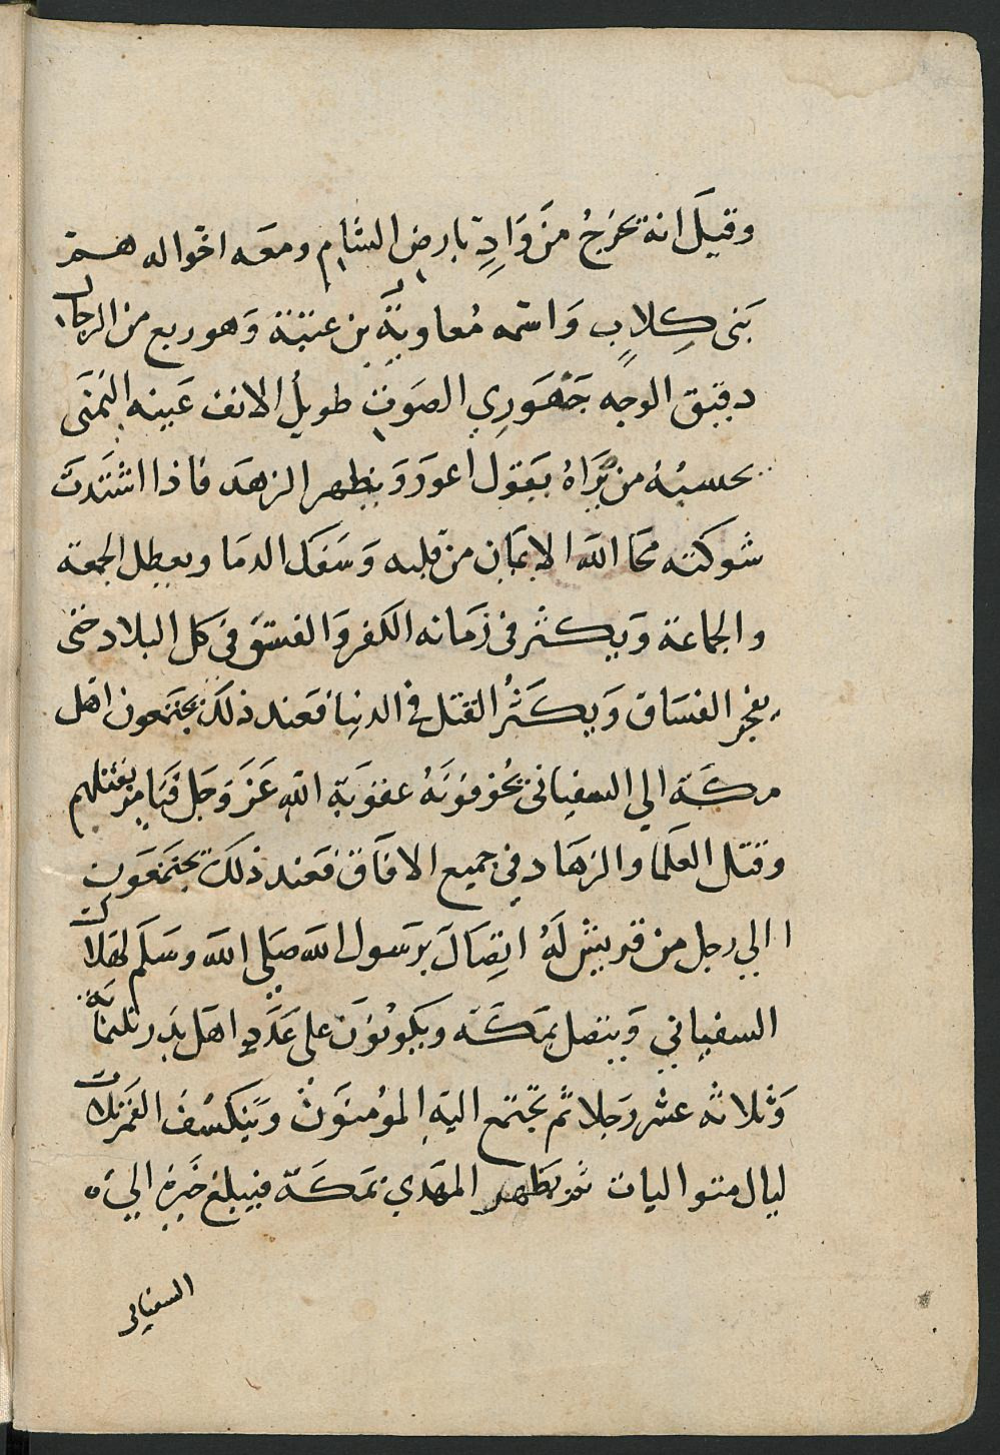 وقيلَ انه يخرجُ منَ وَادٍ بارضِ الشامِ ومعَه اخواله هم
بَنى كِلابٍ وَاسمه مُعاويةَ بن عتبة وَهو ربع من الرجال
دقيق الوجه جَهْوَرِي الصَوت طويلُ الانف عَينه اليُمنَى
يحسبُهُ من يَرَاهُ يقول اعور وَيظهر الزهد فاذا اشتَدت
شوكته محَا الله الايمان من قلبه وَسَفَك الدمَا ويعطل الجمعة
والجماعة وَيكثر فى زَمانه الكفر وَالفسق فى كل البلاد حَتى
يفجر الفسَاق وَيكثُر القتل في الدنيا فعند ذلك يجتمعون اهل
مكَة الي السفيانى يُخوفونَهُ عقوبَة اللهِ عَز وَجل فيَامر بقتلهم
وقتل العلَما والزهَاد في جميع الافاق فعند ذلكَ يجتمعَون
الي رجل من قريش لَهُ اتِصَال برَسول الله صَلي الله وسَلم لهلاك
السفياني وَيتصل بمَكَة ويَكونوُن على عَدَدِ اهل بَدر ثلثمايَة
وَثلاثه عشر رَجلا ثم تجتمع اليهِ المؤمنوَن وَينكسُف القمر ثلاث
ليال متواليات ثم يَظهر المهَدي بمَكَة فيبلغ خَبرهُ الي
السفيانى